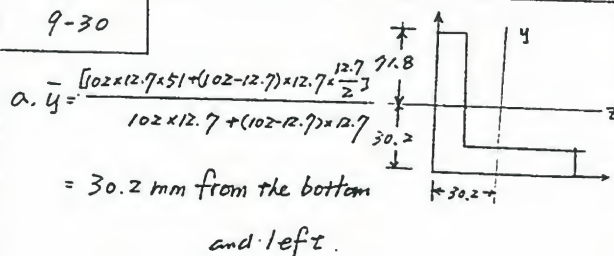 9-30
a. ȳ = [102×12.7×51+(102-12.7)×12.7×12.7/2] / 102×12.7+(102-12.7)×12.7
= 30.2 mm from the bottom
and left.
y
71.8
z
30.2
30.2